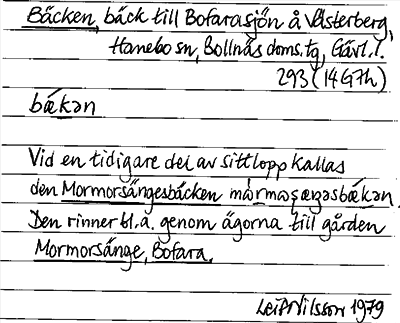 Bäcken, bäck till Bofarasjön å Västerberg,
Hanebo sn, Bollnäs doms.tg, Gävl.l.
293 (14G7h)
bækən
Vid en tidigare del av sitt lopp kallas
den Mormorsängesbäcken mårmoʂæŋəsbækən.
Den rinner bl.a. genom ägorna till gården
Mormorsänge, Bofara.
Leif Nilsson 1979